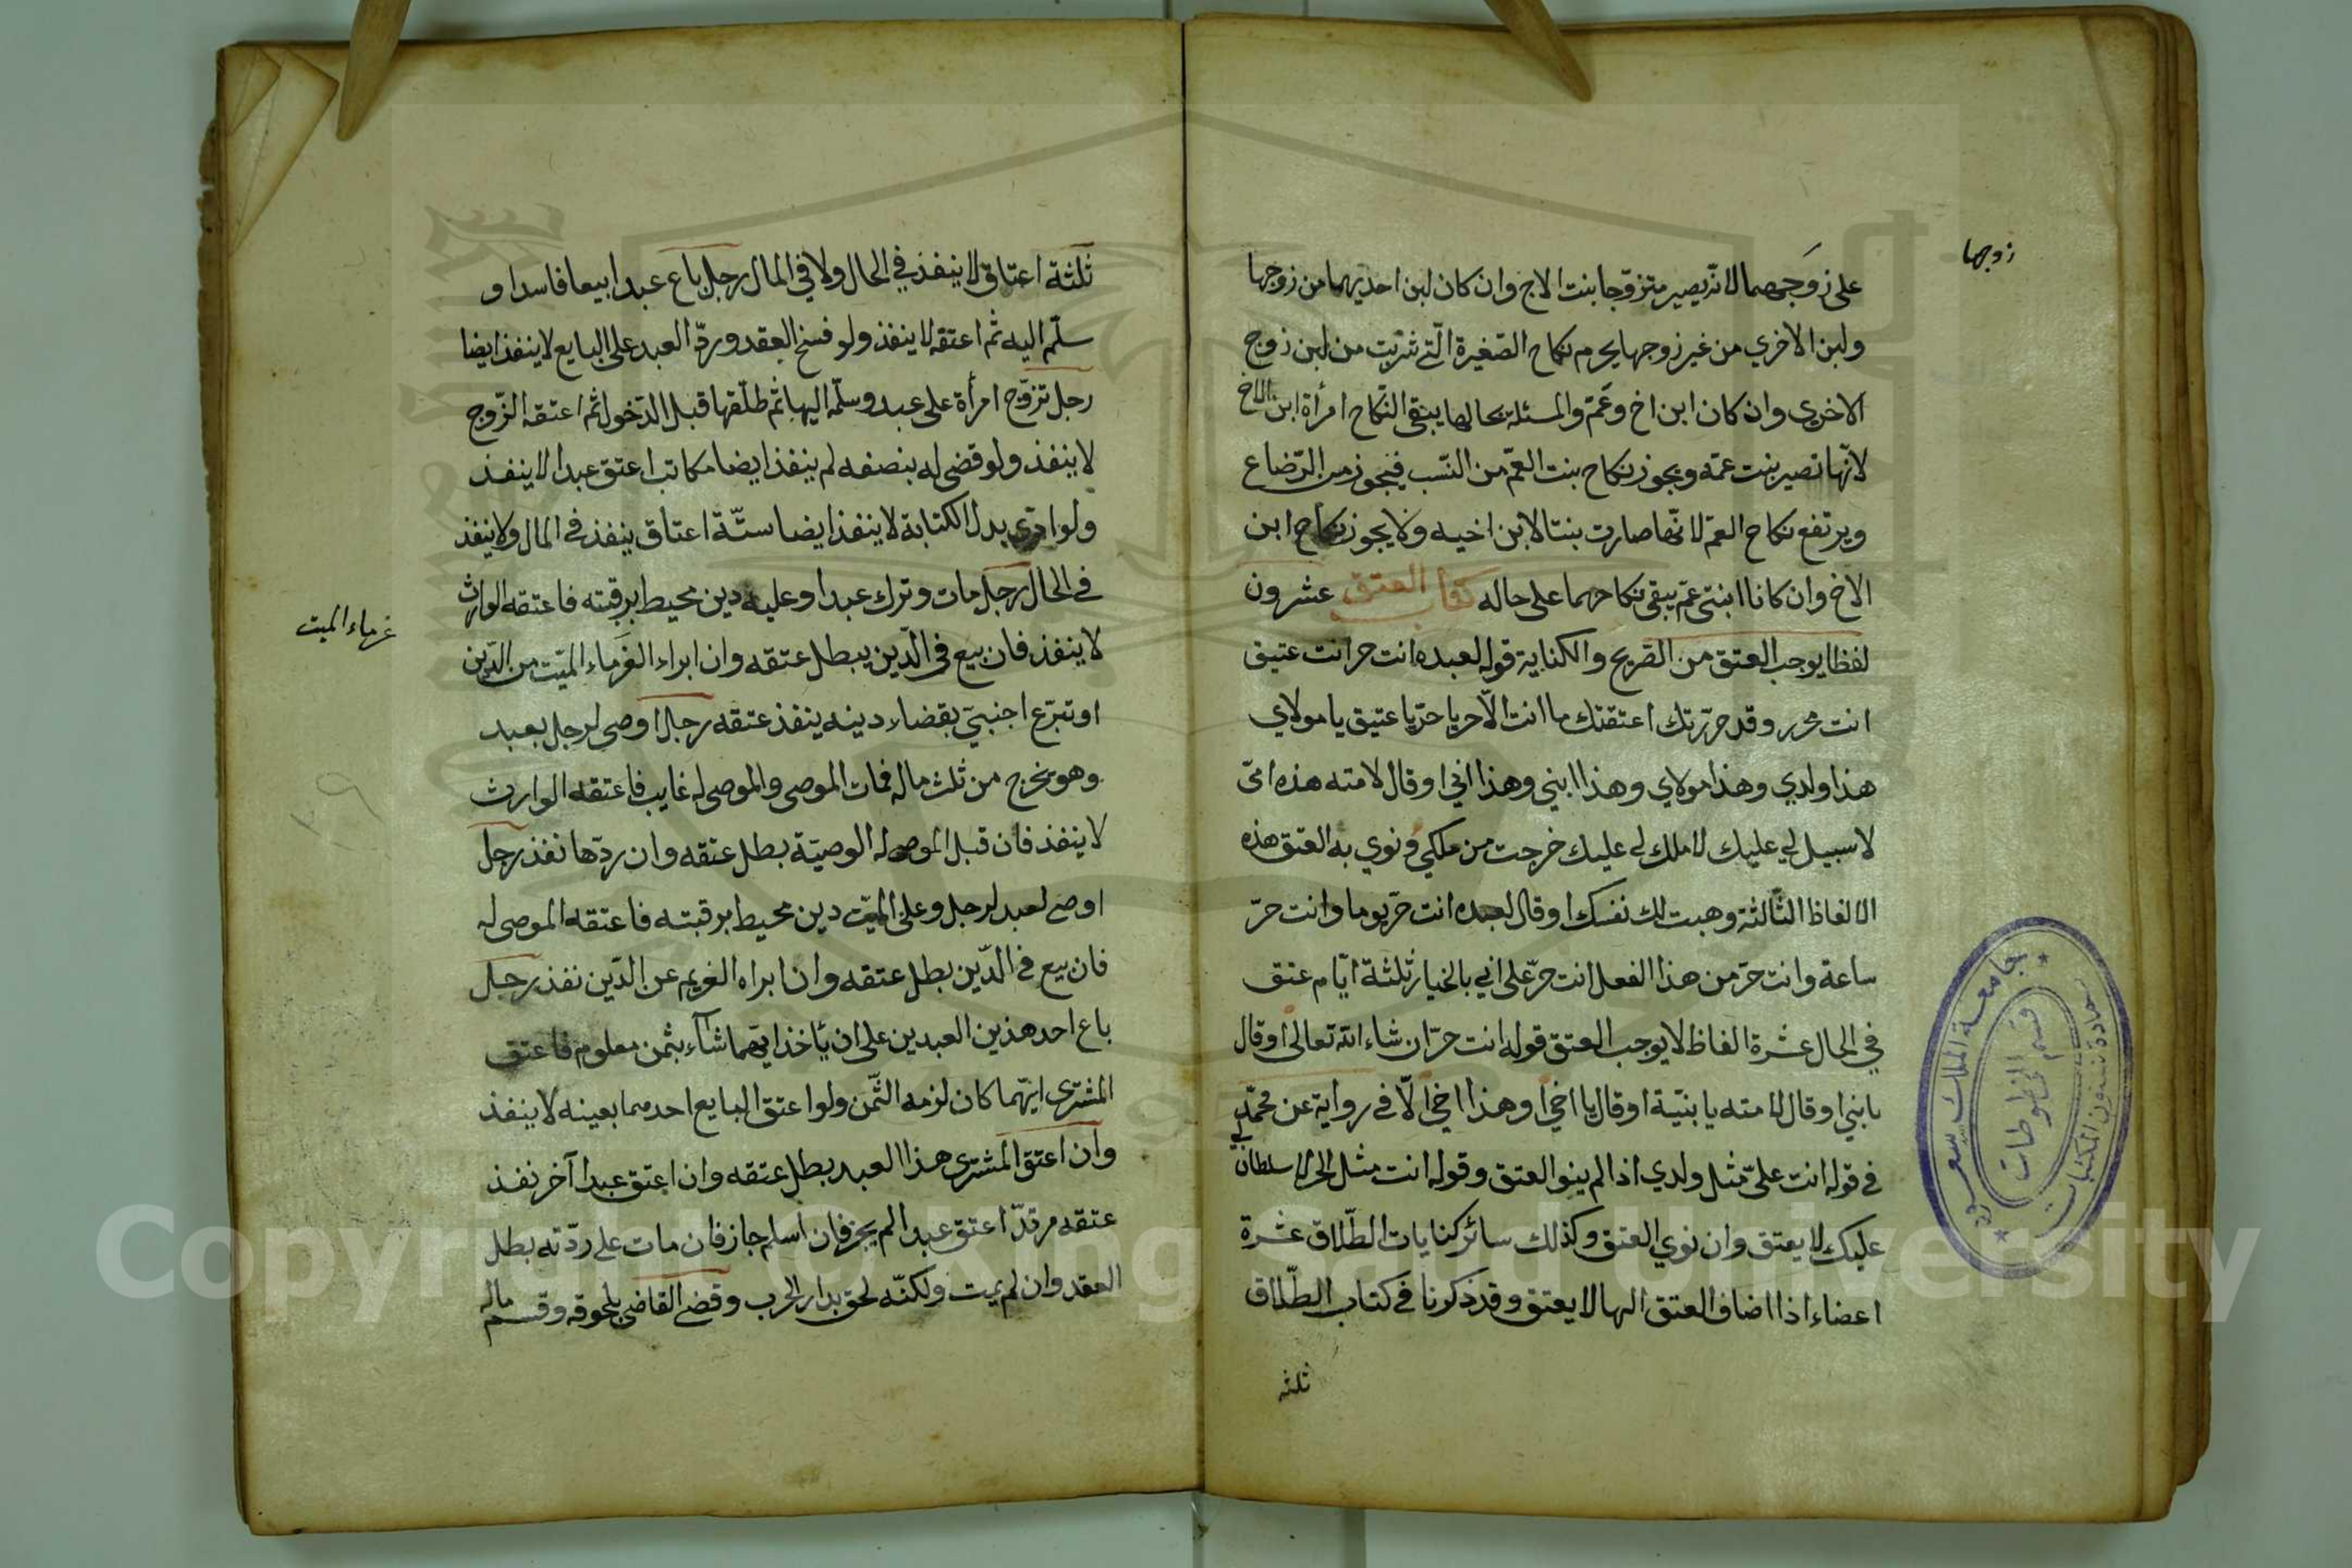 زوجها
على زوجهما لانه يصير متزوجا بنت الاخ وان كان لبن احديهما من زوجها
ولبن الاخري من غير زوجها يحرم نكاح الصّغيرة الّتي شربت من لبن زوج
الاخرى وان كان ابن اخ وعمّ والمسئلة بحالها يبقى النّكاح امرأة ابن الاخ
لانّها تصير بنت عمّه ويجوز نكاح بنت العمّ من النسّب فيجوز من الرّضاع
ويرتفع نكاح العمّ لانّها صارت بنتا لابن اخيه ولا يجوز نكاح ابن
الاخ وان كانا ابنتي عمّ يبقى نكاحهما على حاله كتاب العتق عشرون
لفظا يوجب العتق من الصّريح والكناية قوله لعبده انت حر انت عتيق
انت محرر وقد حرّرتك اعتقتك ما انت الّا حر يا حرّ يا عتيق يا مولاي
هذا ولدي وهذا مولاي وهذا ابني وهذا اخي او قال لامته هذه امّي
لا سبيل لي عليك لا ملك لي عليك خرجت من ملكي ونوي به العتق هذه
الالفاظ الثّالثة وهبت لك نفسك او قال لعبده انت حرّ يوما وانت حرّ
ساعة وانت حرّ من هذا الفعل انت حرّ على اني بالخيار ثلثة ايّام عتق
في الحال عشرة الفاظ لا يوجب العتق قوله انت حرّ ان شاء الله تعالى او قال
يا بني او قال لامته يا بنيّة او قال يا اخي او هذا اخي الّا في رواية عن محمّد
في قوله انت علىّ مثل ولدي اذا لم ينو العتق وقوله انت مثل الحر لا سلطان لي
عليك لا يعتق وان نوي العتق وكذلك سائر كنايات الطّلاق عشرة
اعضاء اذا اضاف العتق اليها لا يعتق وقد ذكرنا في كتاب الطّلاق
ثلثه
ثلثة اعتاق لا ينفذ في الحال ولا في المال رجل باع عبدا بيعا فاسدا و
سلّم اليه ثم اعتقه لا ينفذ ولو فسخ العقد وردّ العبد على البايع لا ينفذ ايضا
رجل تزوّج امرأة على عبد وسلّمه اليها ثم طلّقها قبل الدّخول ثم اعتقه الزّوج
لا ينفذ ولو قضى له بنصفه لم ينفذ ايضا مكاتب اعتق عبدا لا ينفذ
ولو ادّى بدل الكتابة لا ينفذ ايضا ستّة اعتاق ينفذ في المال ولا ينفذ
في الحال رجل مات وترك عبدا وعليه دين محيط برقبته فاعتقه الوارث
لا ينفذ فان بيع في الدّين يبطل عتقه وان ابراء الغرماء الميّت من الدّين
غرماء الميت
او تبرّع اجنبيّ بقضاء دينه ينفذ عتقه رجل اوصى لرجل بعبد
وهو يخرج من ثلث ماله فمات الموصى والموصى له غايب فاعتقه الوارث
لا ينفذ فان قبل الموصى له الوصيّة بطل عتقه وان ردّها نفذ رجل
اوصى لعبد لرجل وعلى الميّت دين محيط برقبته فاعتقه الموصى له
فان بيع في الدّين بطل عتقه وان ابراه الغريم عن الدّين نفذ رجل
باع احد هذين العبدين على ان يأخذ ايّهما شآء بثمن معلوم فاعتق
المشترى ايّهما كان لزمه الثّمن ولو اعتق البايع احدهما بعينه لا ينفذ
وان اعتق المشترى هذا العبد بطل عتقه وان اعتق عبدا آخر نفذ
عتقه مرتدّ اعتق عبدا لم يجز فان اسلم جاز فان مات على ردّته بطل
العقد وان لم يمت ولكنّه لحق بدار الحرب وقضى القاضي بلحوقه وقسم ماله
جامعة الملك سعود
عمادة شئون المكتبات
قسم المخطوطات
Copyright © King Saud University